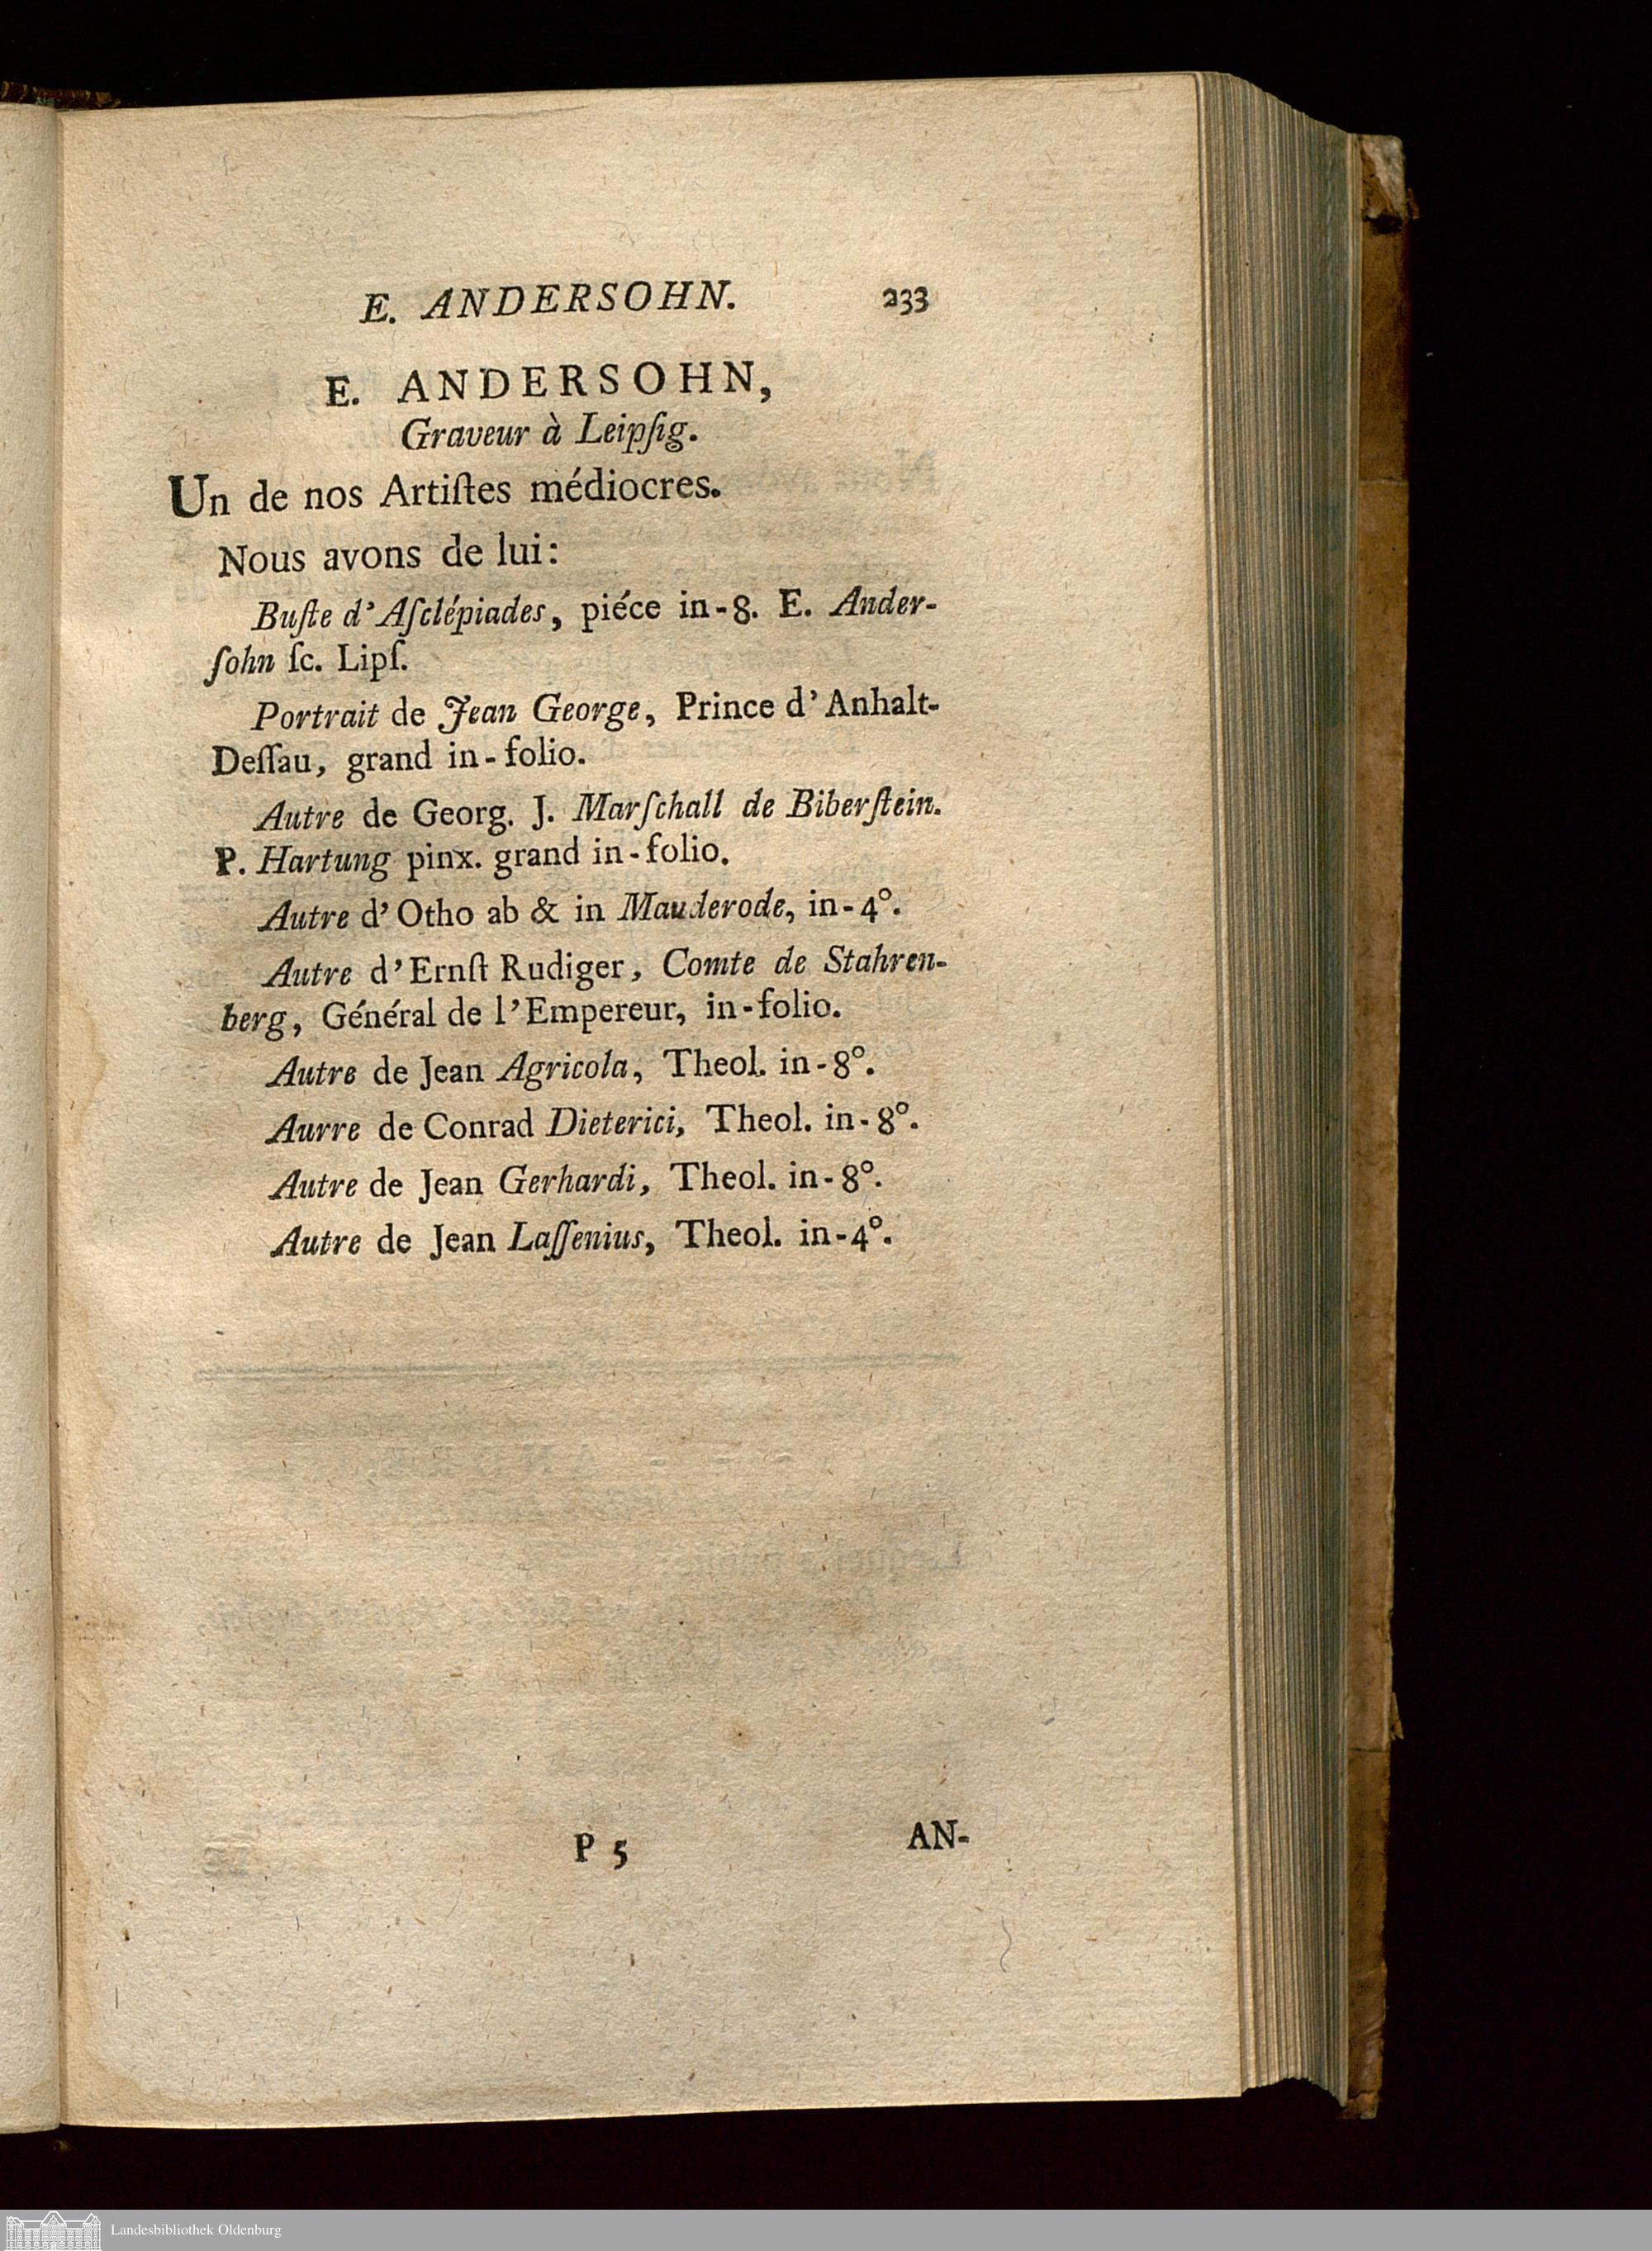 E. ANDERSOHN. 233
E. ANDERSOHN,
Graveur à Leipſig.
Un de nos Artiſtes médiocres.
Nous avons de lui:
Buſte d'Aſclépiades, piéce in-8. E. Ander-
ſohn ſc. Lipſ.
Portrait de Jean George, Prince d'Anhalt-
Deſſau, grand in-folio.
Autre de Georg. J. Marſchall de Biberſtein.
P. Hartung pinx. grand in-folio.
Autre d'Otho ab & in Mauderode, in-4°.
Autre d'Ernſt Rudiger, Comte de Stahren-
berg, Général de l'Empereur, in-folio.
Autre de Jean Agricola, Theol. in-8°.
Aurre de Conrad Dieterici, Theol. in-8°.
Autre de Jean Gerhardi, Theol. in-8°.
Autre de Jean Laſſenius, Theol. in-4°.
P 5 AN-
Landesbibliothek Oldenburg